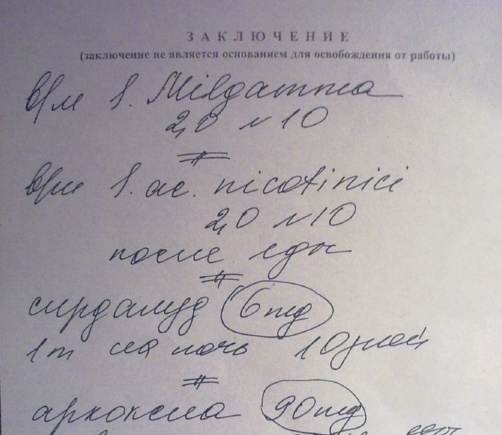 ЗАКЛЮЧЕНИЕ
(заключение не является основанием для освобождения от работы)
в/м S. Milgamma
2,0 N10
в/м S. ac. nicotinici
2,0 N10
после еды
сирдалуд 6mg
1т на ночь 10 дней
аркоксиа 90mg